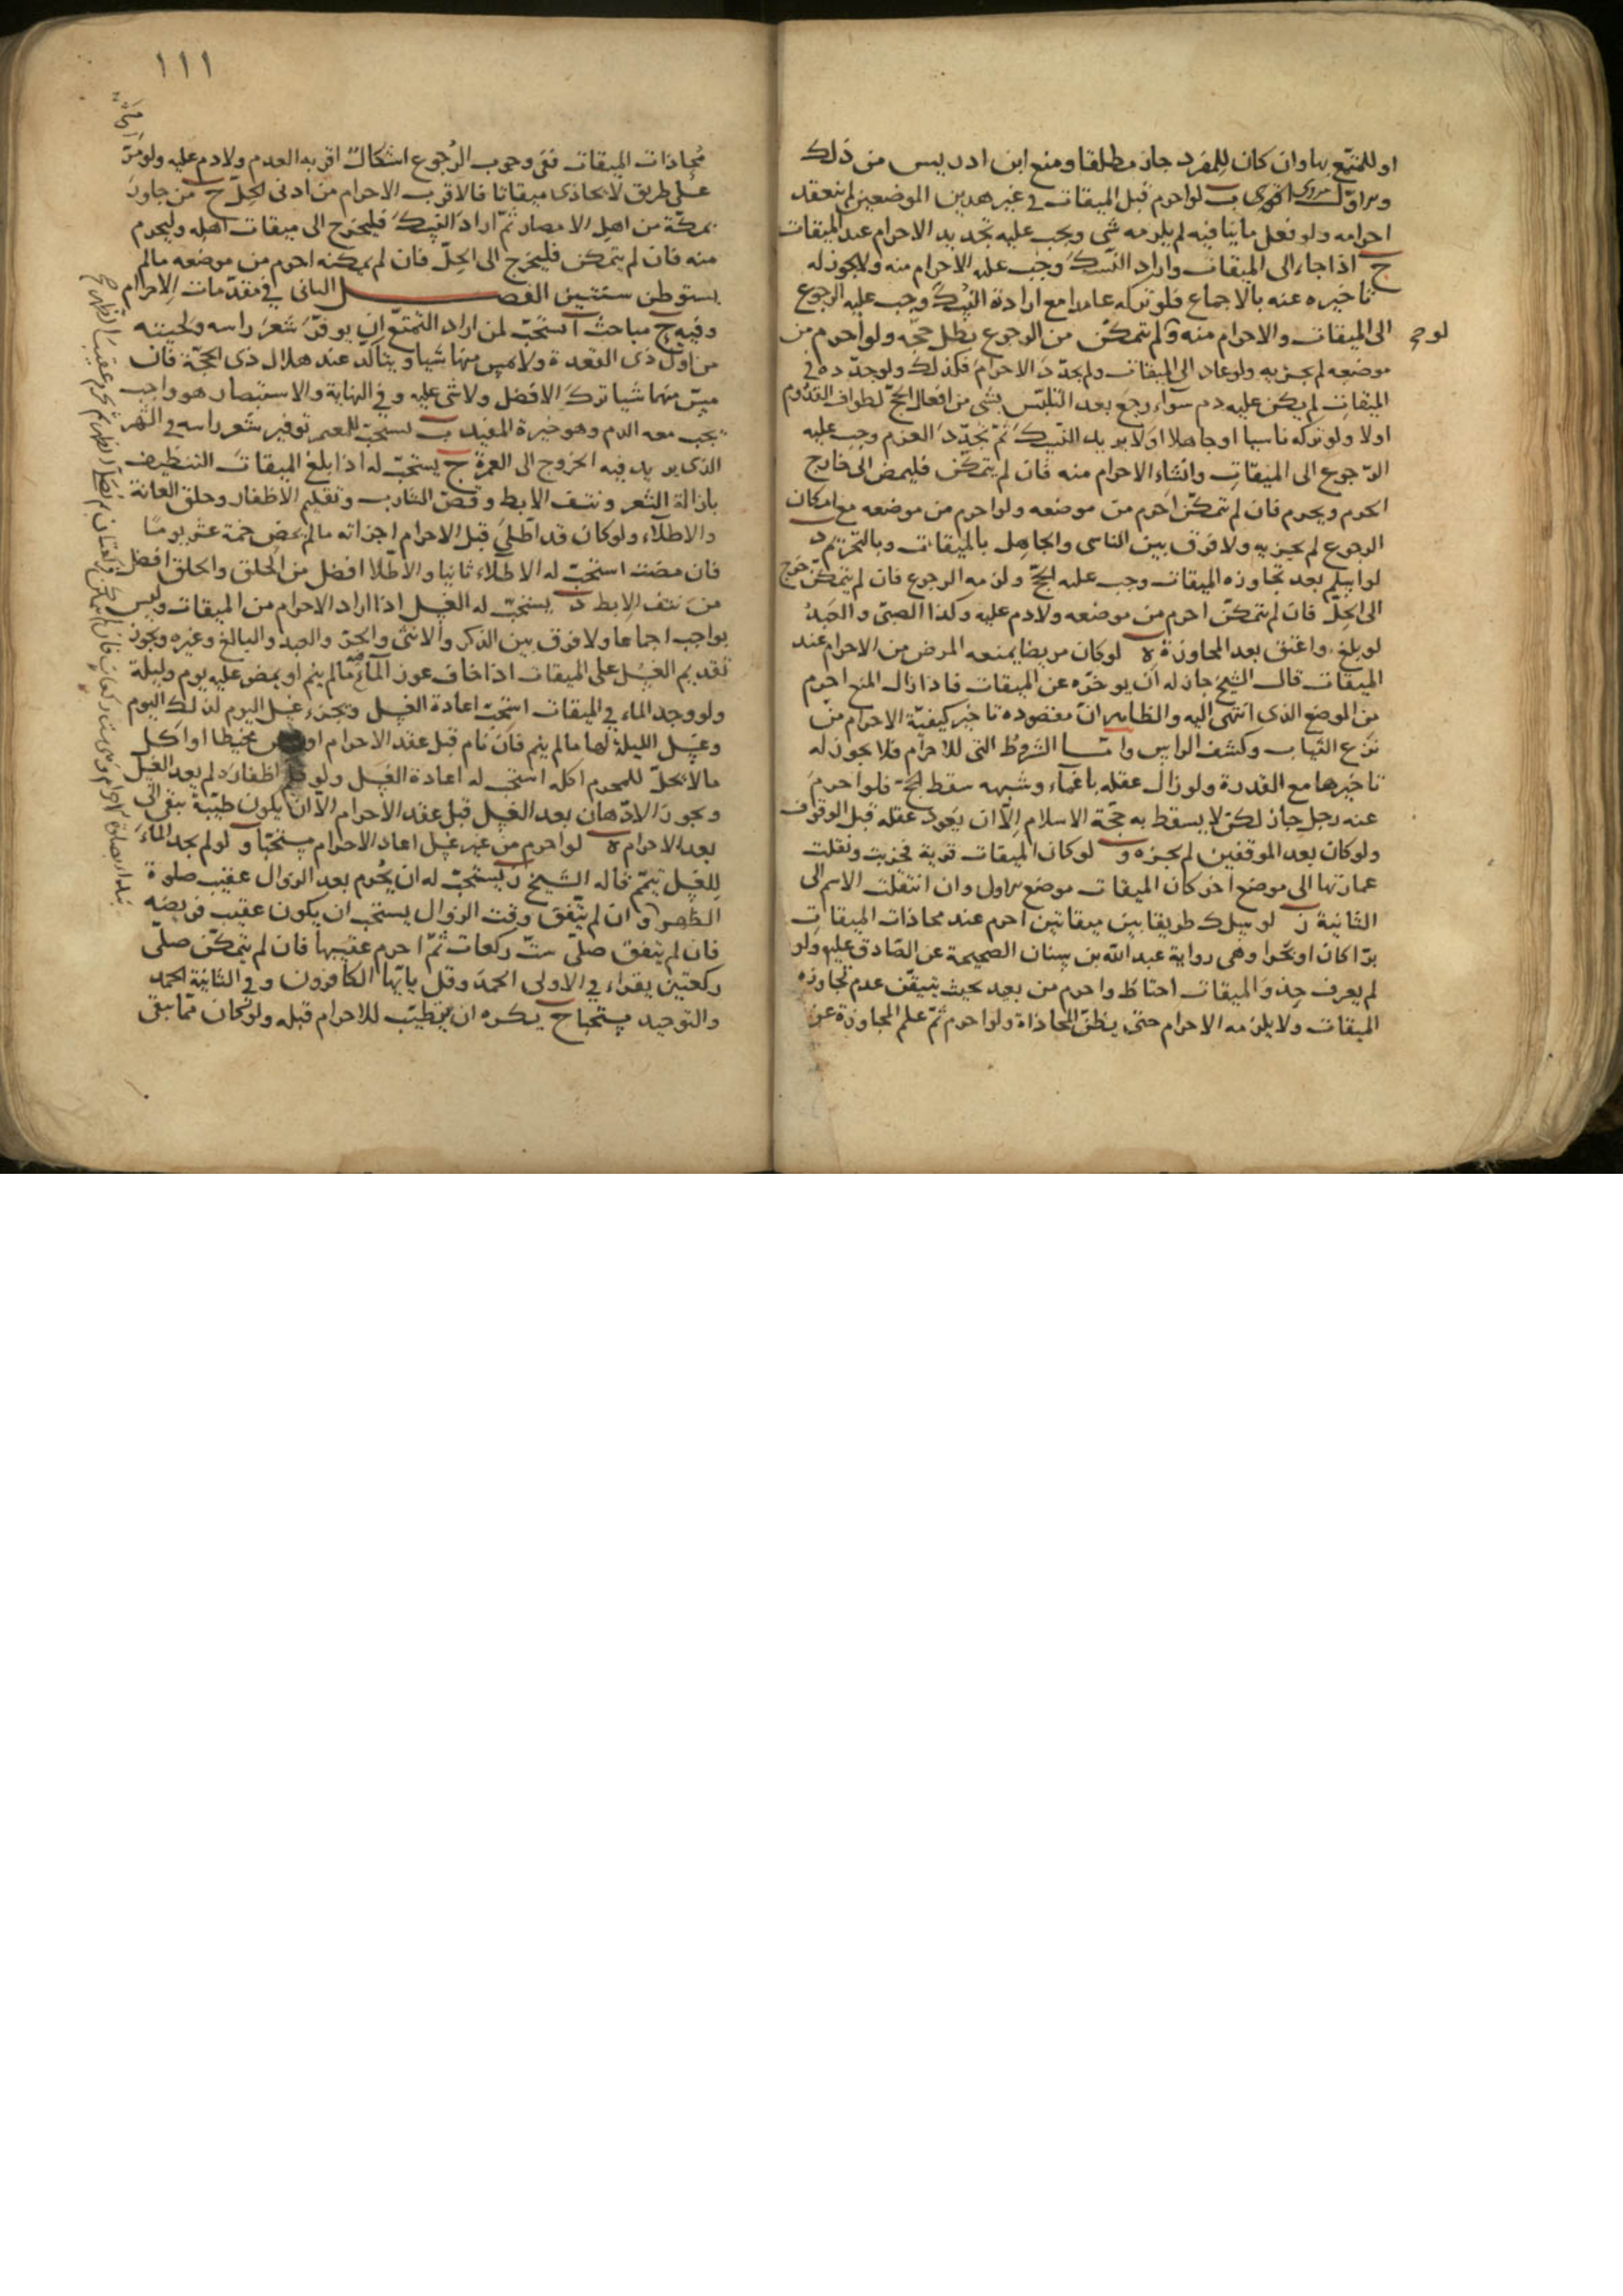 او للمتمتع بها وان كان للمفرد جاز مطلقا ومنع ابن ادريس من ذلك
ب لو احرم قبل الميقات في غير هذين الموضعين لم ينعقد
احرامه ولو فعل ما ينافيه لم يلزمه شي ويجب عليه تجديد الاحرام عند الميقات
ج اذا جاء الى الميقات واراد النسك وجب عليه الاحرام منه ولا يجوز له
تاخيره عنه بالاجماع فلو تركه عامدا مع ارادة النسك وجب عليه الرجوع
الى الميقات والاحرام منه ولو لم يتمكن من الرجوع بطل حجه ولو احرم من
موضعه لم يجزيه ولو عاد الى الميقات ولم يجدد الاحرام فكذلك ولو جدده في
الميقات لم يكن عليه دم سواء رجع بعد التلبس بشي من افعال الحج كطواف القدوم
اولا ولو تركه ناسيا او جاهلا او لا يريد النسك ثم تجدد العزم وجب عليه
الرجوع الى الميقات وانشاء الاحرام منه فان لم يتمكن فليمض الى خارج
الحرم ويحرم فان لم يتمكن احرم من موضعه ولو احرم من موضعه مع امكان
الرجوع لم يجزيه ولا فرق بين الناسي والجاهل بالميقات وبالتحريم د
لو اسلم بعد تجاوزه الميقات وجب عليه الحج ولزمه الرجوع فان لم يتمكن خرج
الى الحل فان لم يتمكن احرم من موضعه ولا دم عليه وكذا الصبي والعبد
لو بلغ واعتق بعد المجاوزة ه لو كان مريضا يمنعه المرض من الاحرام عند
الميقات قال الشيخ جاز له ان يوخره عن الميقات فاذا زال المنع احرم
من الموضع الذي انتهى اليه والظاهر ان مقصوده تاخير كيفية الاحرام من
نزع الثياب وكشف الراس واما الشروط التي للاحرام فلا يجوز له
تاخيرها مع القدرة ولو زال عقله باغماء وشبهه سقط الحج فلو احرم
عنه رجل جاز لكن لا يسقط به حجة الاسلام الا ان يعود عقله قبل الوقوف
ولو كان بعد الموقفين لم يجزه و لو كان الميقات قرية فخربت ونقلت
عمارتها الى موضع اخر كان الميقات موضع الاول وان انتقلت الاسم الى
الثانية ز لو سلك طريقا بين ميقاتين احرم عند محاذات الميقات
برا كان او بحرا وهي رواية عبد الله بن سنان الصحيحة عن الصادق عليه ولو
لم يعرف حذو الميقات احتاط واحرم من بعد بحيث يتيقن عدم تجاوزه
الميقات ولا يلزمه الاحرام حتى يظن المحاذاة ولو احرم ثم علم المجاوزة عن
١١١
محاذات الميقات ففي وجوب الرجوع اشكال اقربه العدم ولا دم عليه ولو مر
على طريق لا يحاذى ميقاتا فالاقرب الاحرام من ادنى الحل ح من جاور
بمكة من اهل الامصار ثم اراد النسك فليخرج الى ميقات اهله وليحرم
منه فان لم يتمكن فليخرج الى الحل فان لم يمكنه احرم من موضعه مالم
يستوطن سنتين الفصل الثاني في مقدمات الاحرام
وفيه مباحث ا يستحب لمن اراد التمتع ان يوفر شعر راسه ولحيته
من اول ذي القعدة ولا يمس منها شيا ويتاكد عند هلال ذي الحجة فان
مس منهما شيا ترك الافضل ولا شي عليه وفي النهاية والاستبصار هو واجب
يجب معه الدم وهو خيرة المفيد ب يستحب للمعتمر توفير شعر راسه في الشهر
الذي يريد فيه الخروج الى العمرة ج يستحب له اذا بلغ الميقات التنظيف
بازالة الشعر ونتف الابط وقص الشارب وتقليم الاظفار وحلق العانة
والاطلاء ولو كان قد اطلى قبل الاحرام اجزاته مالم يمض خمسة عشر يوما
فان مضت استحب له الاطلاء ثانيا والاطلاء افضل من الحلق والحلق افضل
من نتف الابط د يستحب له الغسل اذا اراد الاحرام من الميقات وليس
بواجب اجماعا ولا فرق بين الذكر والانثى والحر والعبد والبالغ وغيره ويجوز
تقديم الغسل على الميقات اذا خاف عوز الماء مالم ينم او يمض عليه يوم وليلة
ولو وجد الماء في الميقات استحب اعادة الغسل ويجزء غسل اليوم لذلك اليوم
وغسل الليلة لها مالم ينم فان نام قبل عقد الاحرام او مخيطا او اكل
مالا يحل للمحرم اكله استحب له اعادة الغسل ولو قلم اظفاره لم يعد الغسل
ويجوز الادهان بعد الغسل قبل عقد الاحرام الا ان يكون طيبة يبقى الى
بعد الاحرام ه لو احرم من غير غسل اعاد الاحرام مستحبا و لو لم يجد الماء
للغسل تيمم قاله الشيخ ز يستحب له ان يحرم بعد الزوال عقيب صلوة
الظهر وان لم يتفق وقت الزوال يستحب ان يكون عقيب فريضه
فان لم يتفق صلى ست ركعات ثم احرم عقيبها فان لم يتمكن صلى
ركعتين يقراء في الاولى الحمد وقل يا ايها الكافرون وفي الثانية الحمد
والتوحيد مستحبا ح يكره ان يتطيب للاحرام قبله ولو كان مما يبقى